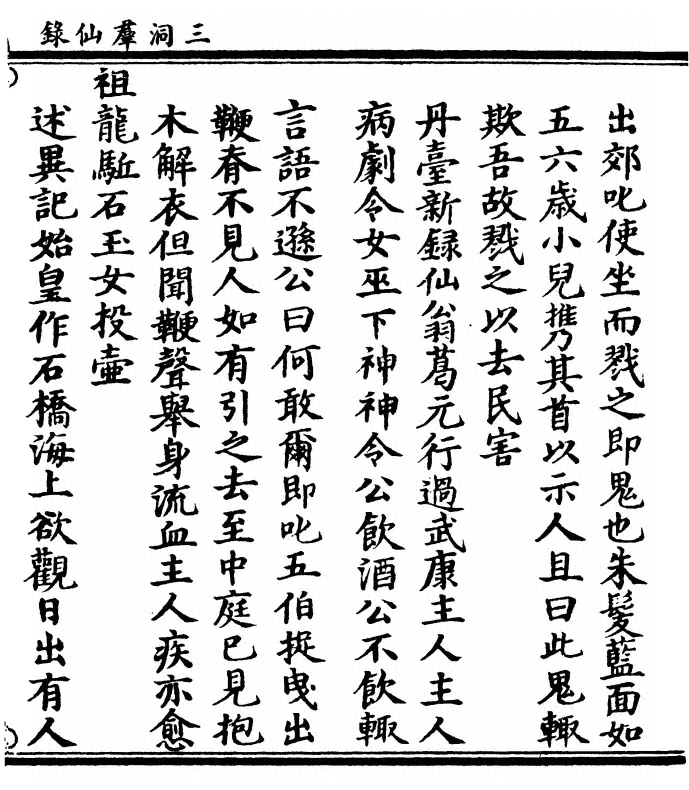 三洞羣仙錄
出郊叱使坐而戮之即鬼也朱髮藍面如
五六歲小兒攜其首以示人且曰此鬼輙
欺吾故戮之以去民害
丹臺新録仙翁葛元行過武康主人主人
病劇令女巫下神神令公飲酒公不飲輙
言語不遜公曰何敢爾即叱五伯捉曳出
鞭脊不見人如有引之去至中庭已見抱
木解衣但聞鞭聲舉身流血主人疾亦愈
祖龍駈石玉女投壷
述異記始皇作石橋海上欲觀日出有人